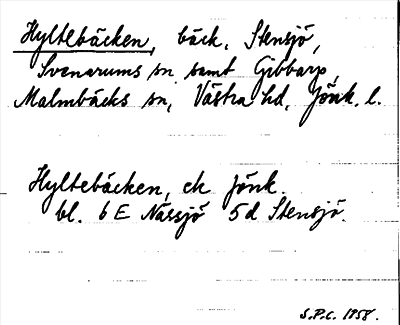 Hyltebäcken, bäck, Stensjö,
Svenarums sn samt Gibbarp,
Malmbäcks sn, Västra hd, Jönk. l.
Hyltebäcken, ek Jönk.
bl. 6 E Nässjö 5d Stensjö.
S.P.C. 1958.